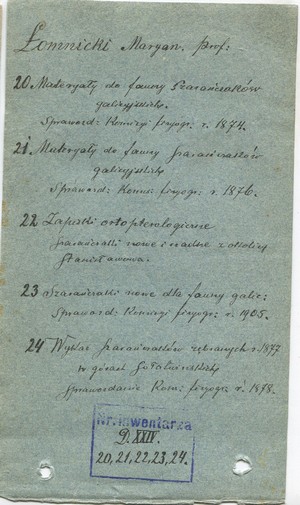 Łomnicki Maryan. prof:
20 Materyały do fauny Szarańczaków
galicyjskich.
Sprawozd: Komisyi fizyogr: r. 1874.
21. Materyały do fauny szarańczaków
galicyjskich
Sprawozd: Komis: fizyogr: r. 1876.
22 Zapiski ortopterologiczne
szarańczaki nowe i rzadkie z okolicy
Stanisławowa.
23 Szarańczaki nowe dla fauny galic:
Sprawozd: Komisyi fizyogr: r. 1905.
24 Wykaz szarańczaków zebranych r. 1877
w górach Sołotwińskich
Sprawozdanie Kom: fizyogr: r. 1878.
Nr. inwentarza
D. XXIV.
20, 21, 22, 23, 24.